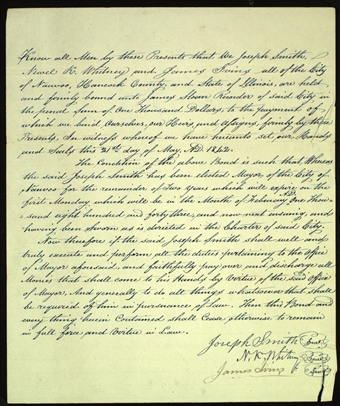 Know all Men by these Presents that We Joseph Smith,
Newel K. Whitney and James Ivins all of the City
of Nauvoo, Hancock County, and State of Illinois, are held
and firmly bound unto James Sloan Recorder of said City in
the penal Sum of One Thousand Dollars, to the payment of
which we bind Ourselves, our Heirs and Assigns, firmly by these
Presents. In witness whereof we have hereunto set, our Hands
and Seals this 21st day of May, A.D. 1842.
The Condition of the above Bond is such that Whereas
the said Joseph Smith has been elected Mayor of the City of
Nauvoo for the remainder of Two Years which will expire on the
first Monday which will be in the Month of February One Thou-
sand eight hundred and forty three, and now next ensuing, and
having been sworn as is directed in the Charter of said City.
Now therefore if the said Joseph Smith shall well and
truly execute and perform all the duties pertaining to the office
of Mayor aforesaid, and faithfully pay over and discharge all
Monies that shall come to his Hands by Virtue of the said office
of Mayor; And generally to do all things whatsoever that shall
be required of him in pursuance of Law. Then this Bond and
every thing herein Contained shall Cease otherwise to remain
in full force and Virtue in Law.
Joseph Smith Seal
N. K. Whitney Seal
James Ivins Seal